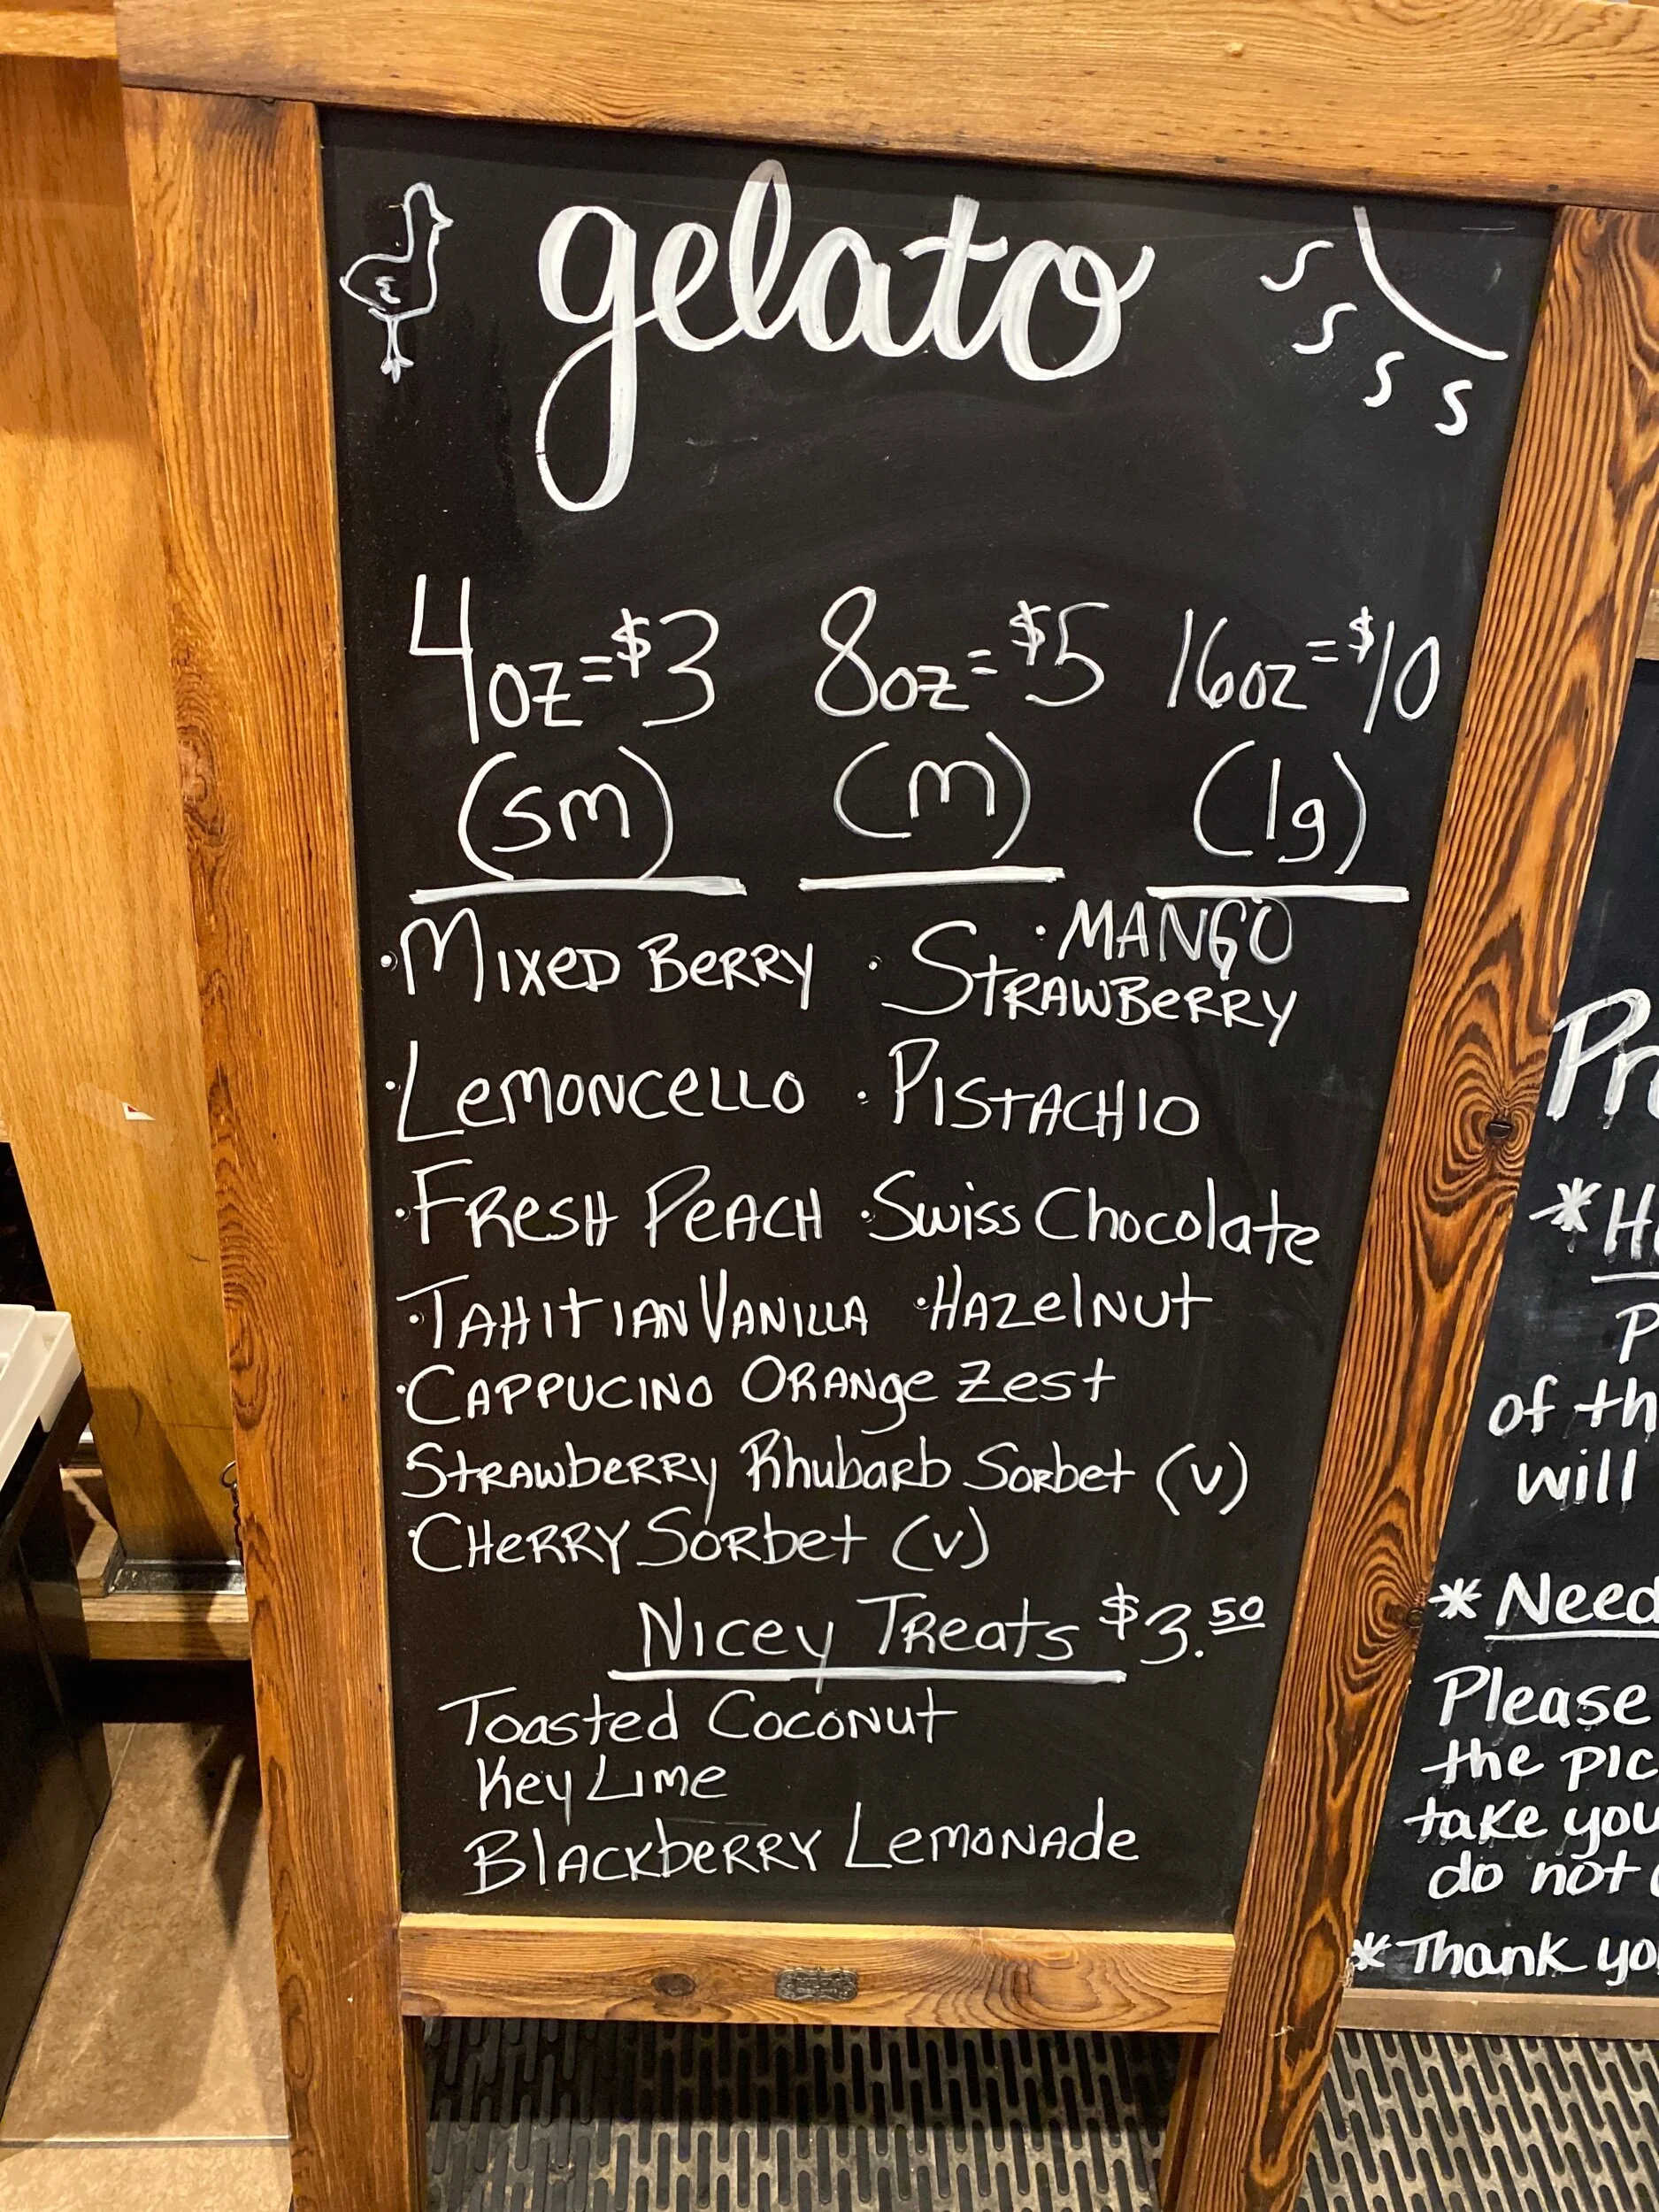 gelato
S
S
S S
4oz=$3 8oz=$5 16oz=$10
(sm) (m) (lg)
• MANGO
•Mixed Berry • Strawberry
•Lemoncello • Pistachio
•Fresh Peach •Swiss Chocolate
•Tahitian Vanilla •Hazelnut
•Cappucino Orange Zest
Strawberry Rhubarb Sorbet (v)
•Cherry Sorbet (v)
Nicey Treats $3.50
Toasted Coconut
Key Lime
Blackberry Lemonade
Pr
*H
P
of th
will
* Need
Please
the pic
take you
do not
*Thank yo